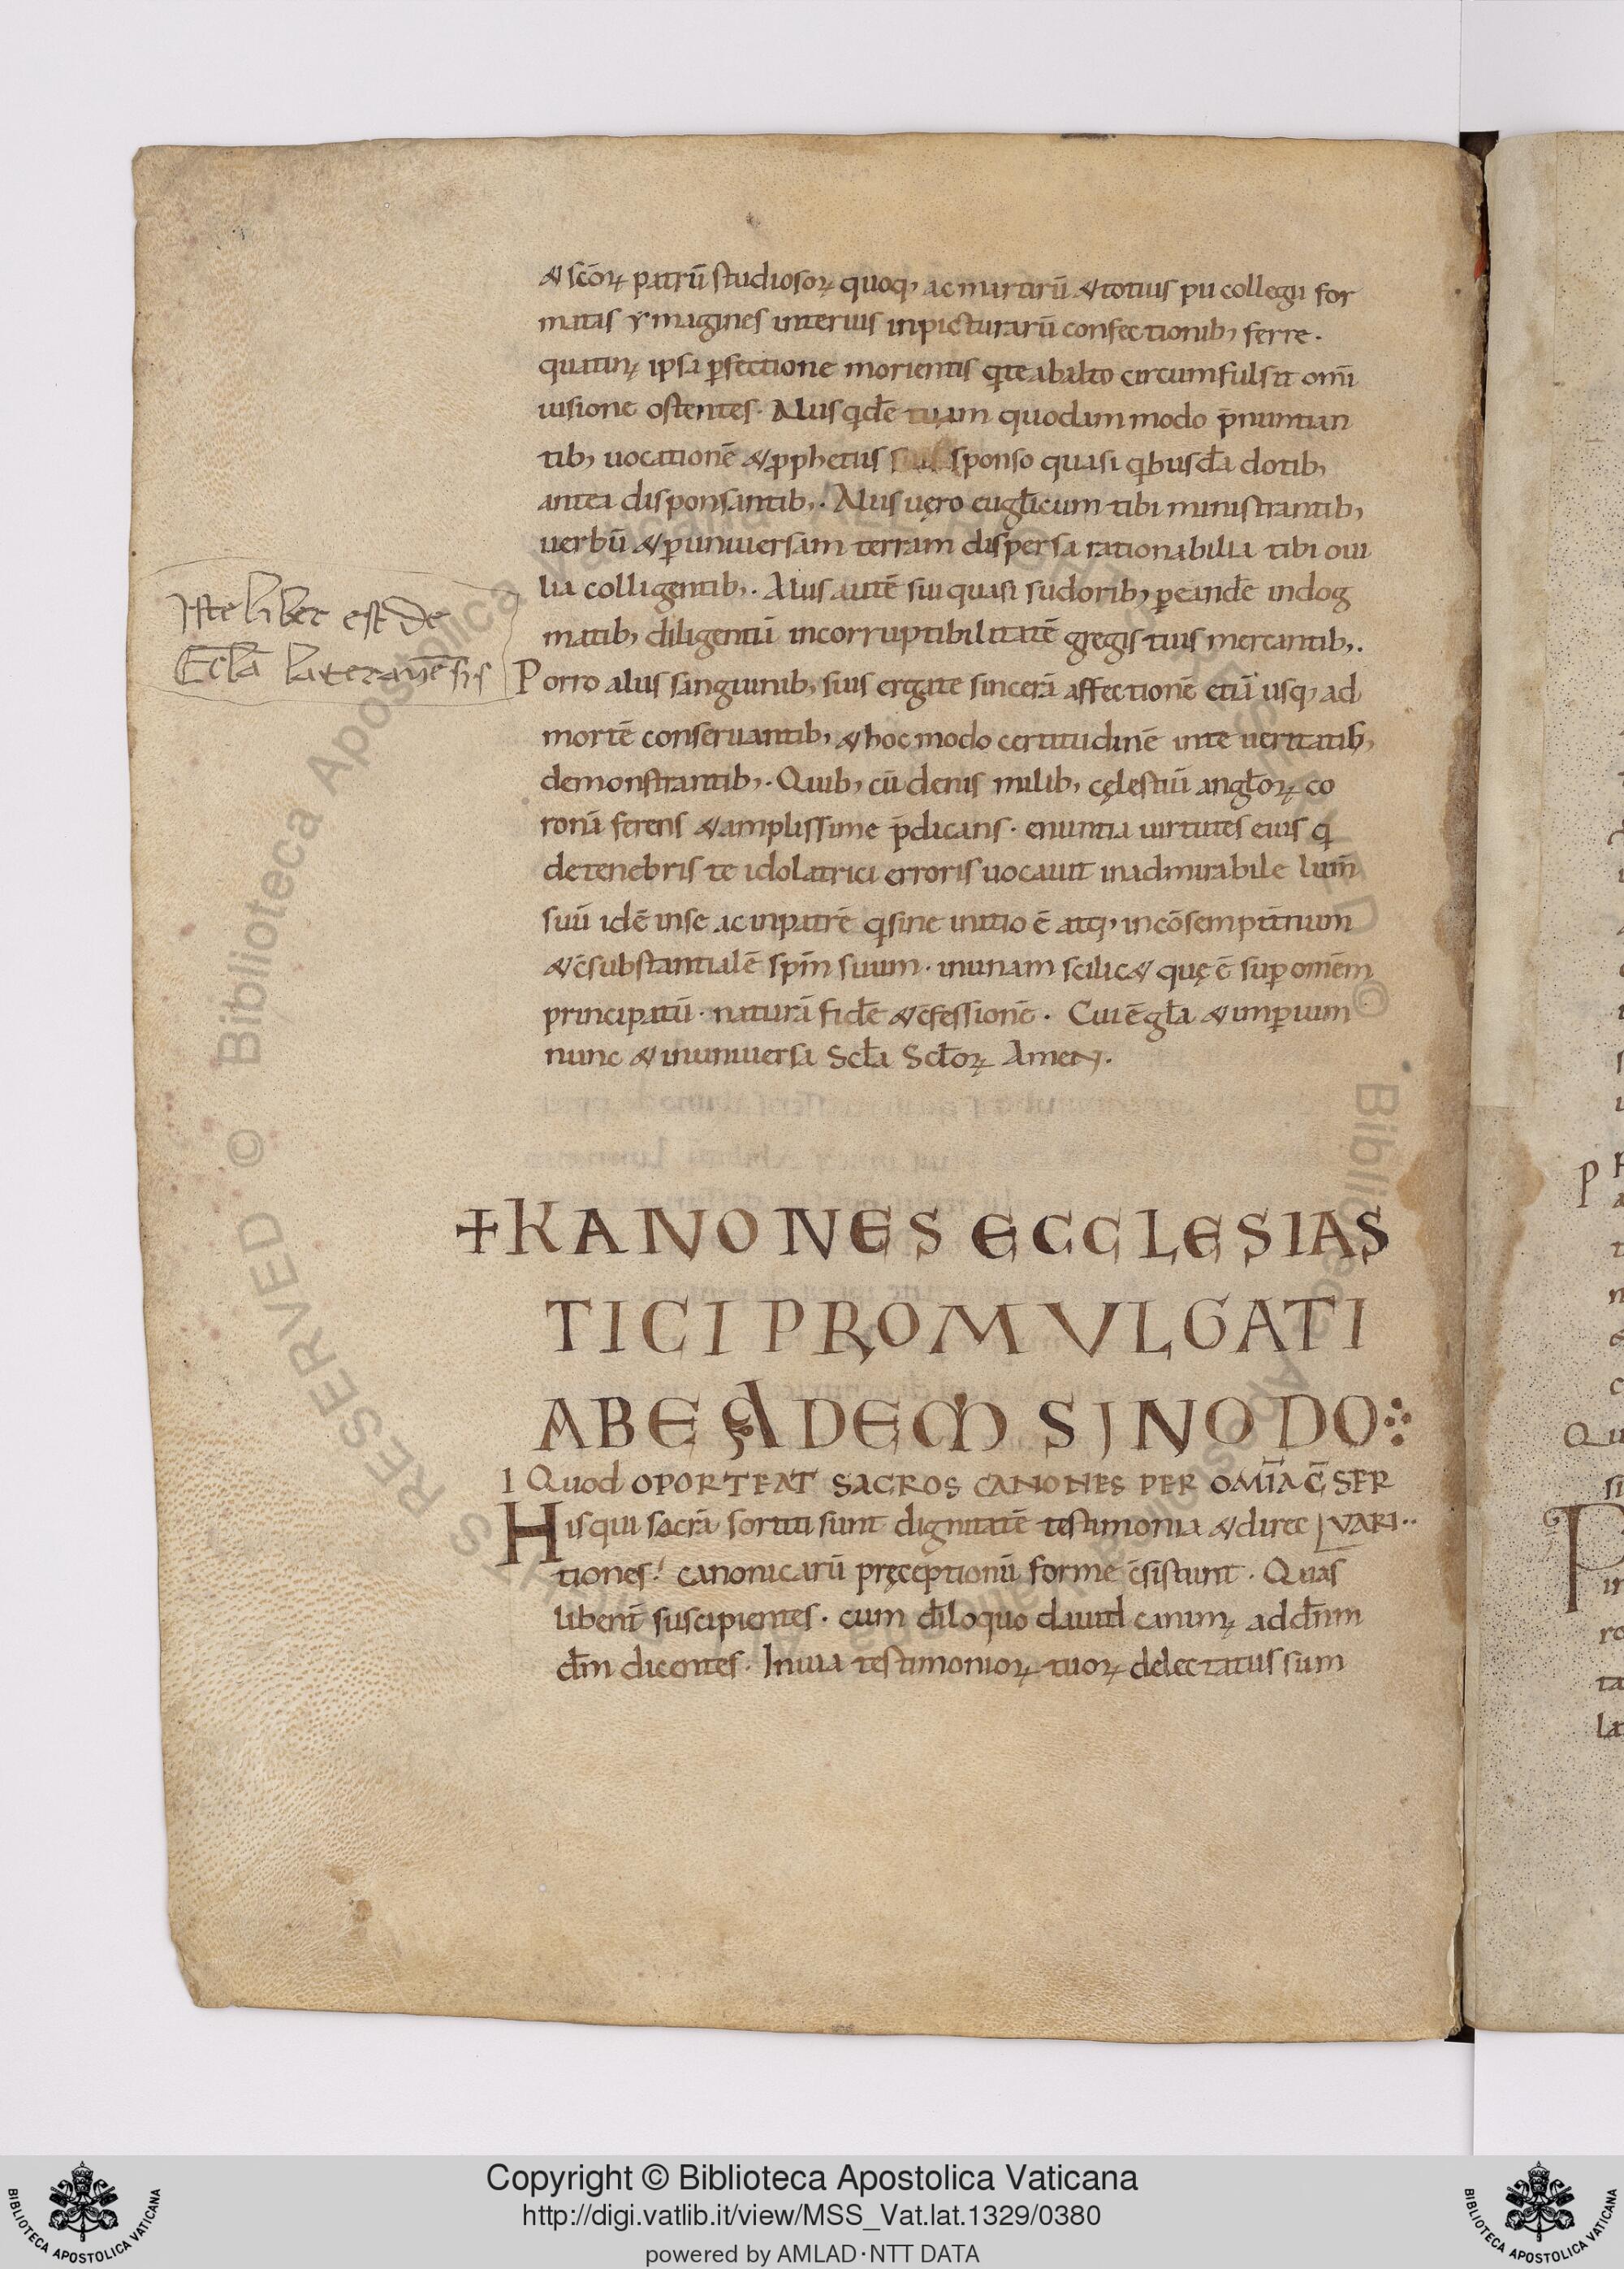 & scōꝝ patrū studiosoꝝ quoq, ac martirū & totius pii collegii for
matas ymagines interius inpicturarū confectionib, ferre.
quatinꝰ ipsa ꝑfectione morientis q te abalto circumfulsit om̄i
uisione ostentes. Aliis qdē tuam quodam modo p̄nuntian
tib, uocationē & ꝓphetiis sponso quasi qbusdā dotib,
antea disponsantib,. Aliis uęro euglīcum tibi ministrantib,
uerbū & ꝑuniuersam terram dispersa rationabilia tibi oui
lia colligentib,. Aliis autē sui quasi sudorib, ꝑ eandē indog
matib, diligentiū incorruptibilitatē gregis tuis mercantib,.
Iste liber est de
Eccl̄a lateranēsis
Porro aliis sanguinib, suis ergate sincerā affectionē etiā usq, ad
mortē conseruantib, & hoc modo certitudinē inte ueritatib,
demonstrantib,. Quib, cū denis milib, cęlestiū angl̄oꝝ co
ronā ferens & amplissime p̄dicans. enuntia uirtutes eius q
detenebris te idolatrici erroris uocauit inadmirabile lum̄
suū idē inse ac inpatrē q sine initio ē atq, in cōsempit̄num
& c̄substantialē sp̄m suum. inunam scilic& quę ē suꝑ omēm
principatū. naturā fidē & c̄fessionē. Cui ē gl̄a & imꝑium
nunc & inuniuersa Scl̄a Scl̄oꝝ Amen.
+KANONES ECCLESIAS
TICI PROMVLGATI
ABEADEM SINODO
I Quod OPORTEAT SACROS CANONES PER OMĪA C̄SER
His qui sacrā sortiti sunt dignitatē testimonia & direc [VARI..
tiones. canonicarū pręceptionū forme c̄sistunt. Quas
libent̄ suscipientes. cum dīloquo dauid canimꝰ ad dn̄m
dm̄ dicentes. Inuia testimonioꝝ tuoꝝ delectatus sum
Copyright © Biblioteca Apostolica Vaticana
http://digi.vatlib.it/view/MSS_Vat.lat.1329/0380
powered by AMLAD·NTT DATA
BIBLIOTECA APOSTOLICA VATICANA
BIBLIOTECA APOSTOLICA VATICANA